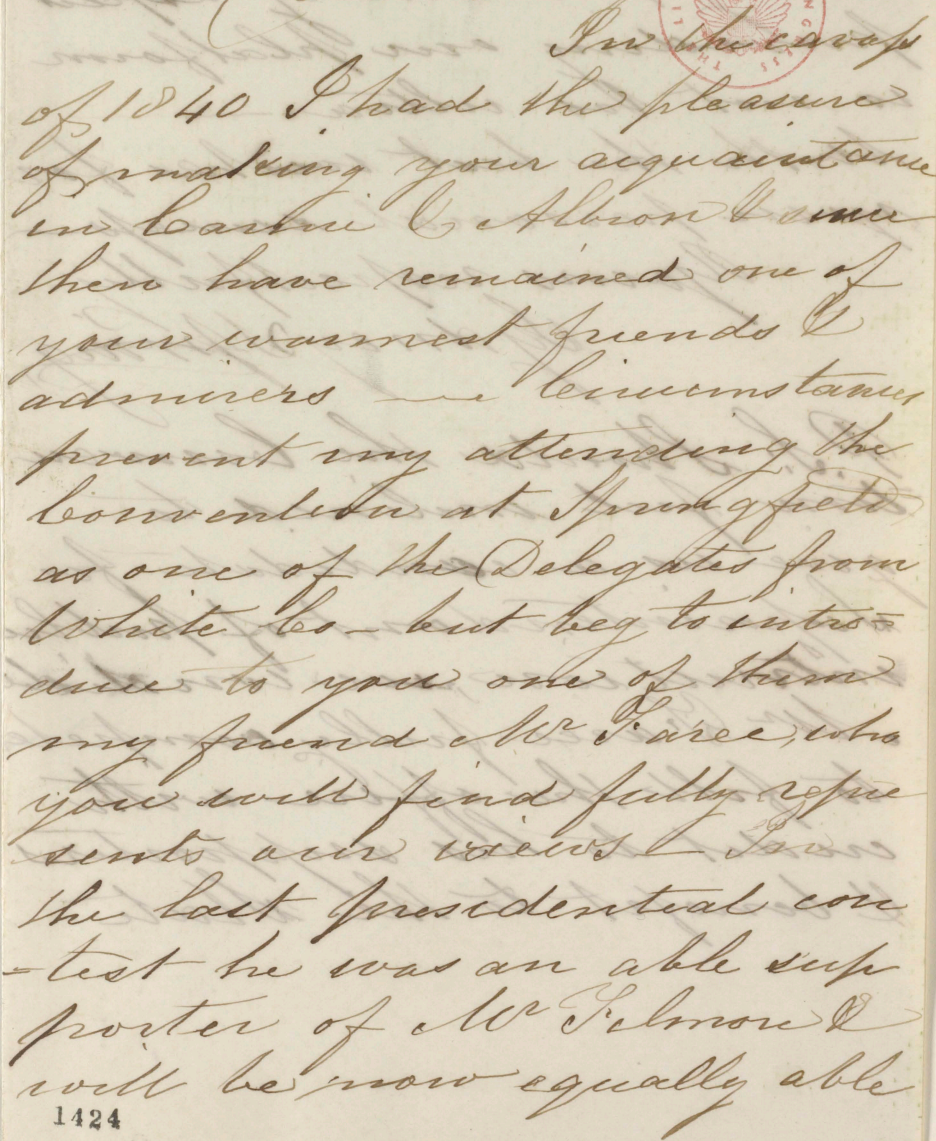 In the canvass
of 1840 I had the pleasure
of making your acquaintance
in Carmi & Albion & since
then have remained one of
your warmest friends &
admirers — Circumstances
prevent my attending the
Convention at Springfield
as one of the Delegates from
White Co - but beg to intro=
duce to you one of them
my friend Mr who
you will find fully repre
sents our views - In
the last presidential con
-test he was an able sup
porter of Mr Filmore &
will be now equally able
1424